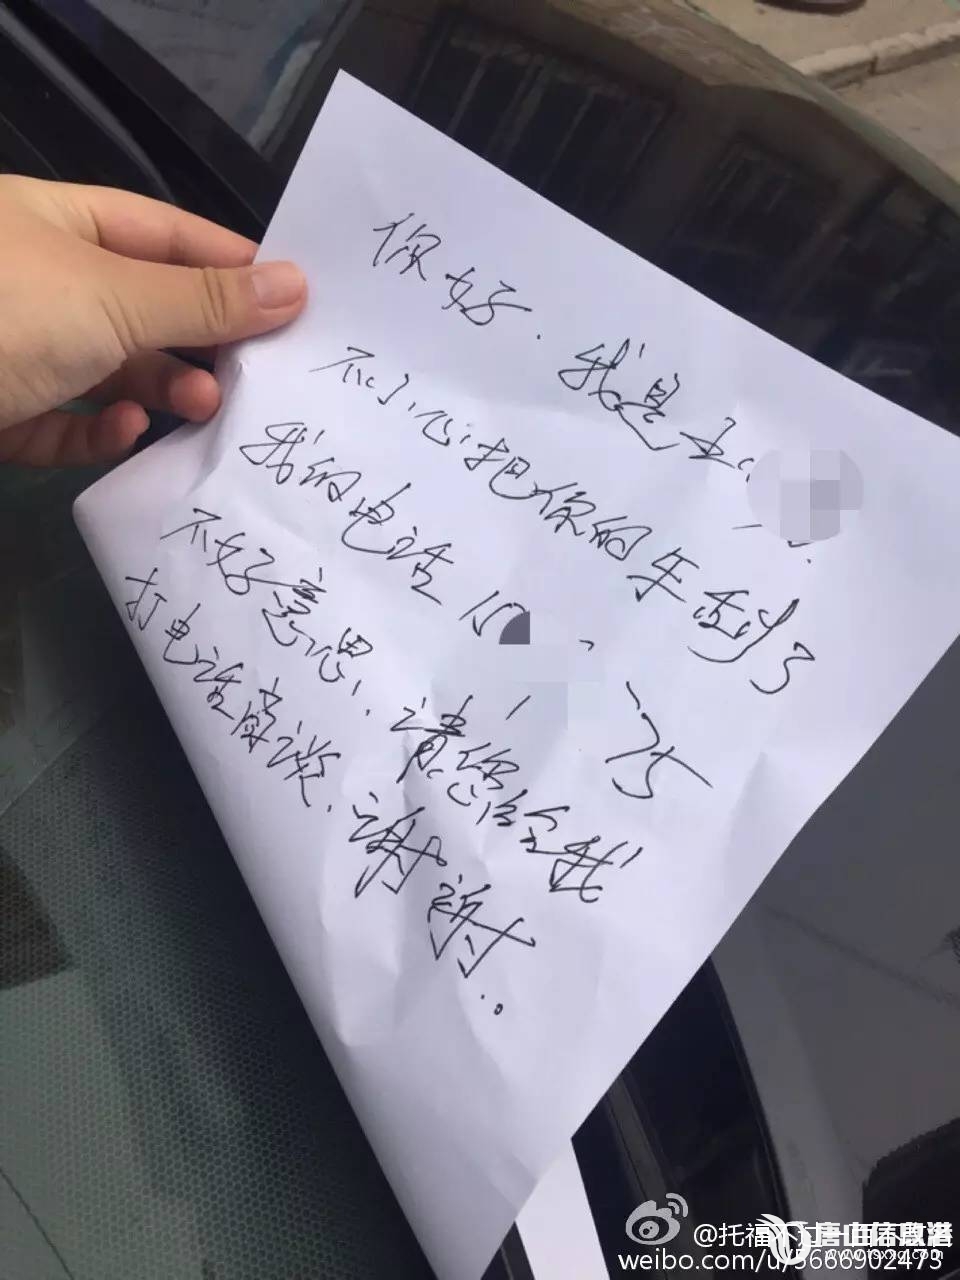 你好.我是
不小心把你的车刮了
我的电话 75
不好意思,请您给我
打电话商谈.谢谢..
@托福不
weibo.com/u/5666902473
唐山信息港